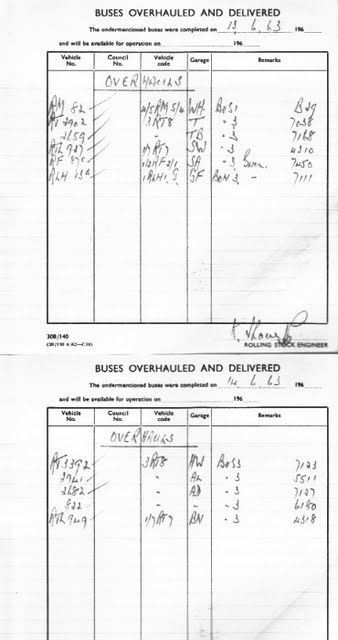 BUSES OVERHAULED AND DELIVERED
The undermentioned buses were completed on 13. 6. 63 196
and will be available for operation on 196
Vehicle No. Council No. Vehicle code Garage Remarks
OVERHAULS
RM 82 4/5RM5/4 WH BoS1 B29
3RT8 T - 3 7038
2659 - TB - 3 7168
1/7RT7 SW - 3 4310
SA - 3 7450
RLH GF 7111
308/140
ROLLING STOCK ENGINEER
BUSES OVERHAULED AND DELIVERED
The undermentioned buses were completed on 14. 6. 63 196
and will be available for operation on 196
Vehicle No. Council No. Vehicle code Garage Remarks
OVERHAULS
RT3392 3RT8 AW BoS3 7123
3941 - AL - 3 5511
2682 - AD - 3 7127
822 - - 3 6180
RTL949 1/7RT7 BN - 3 4318